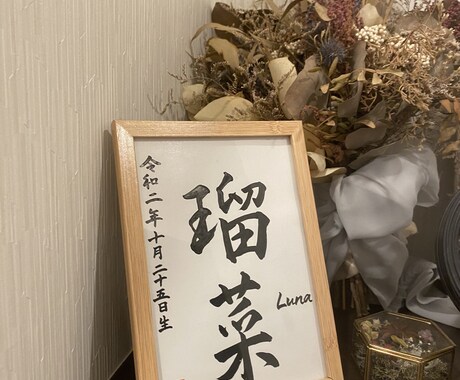 令和二年十月二十五日生
瑠菜
Luna